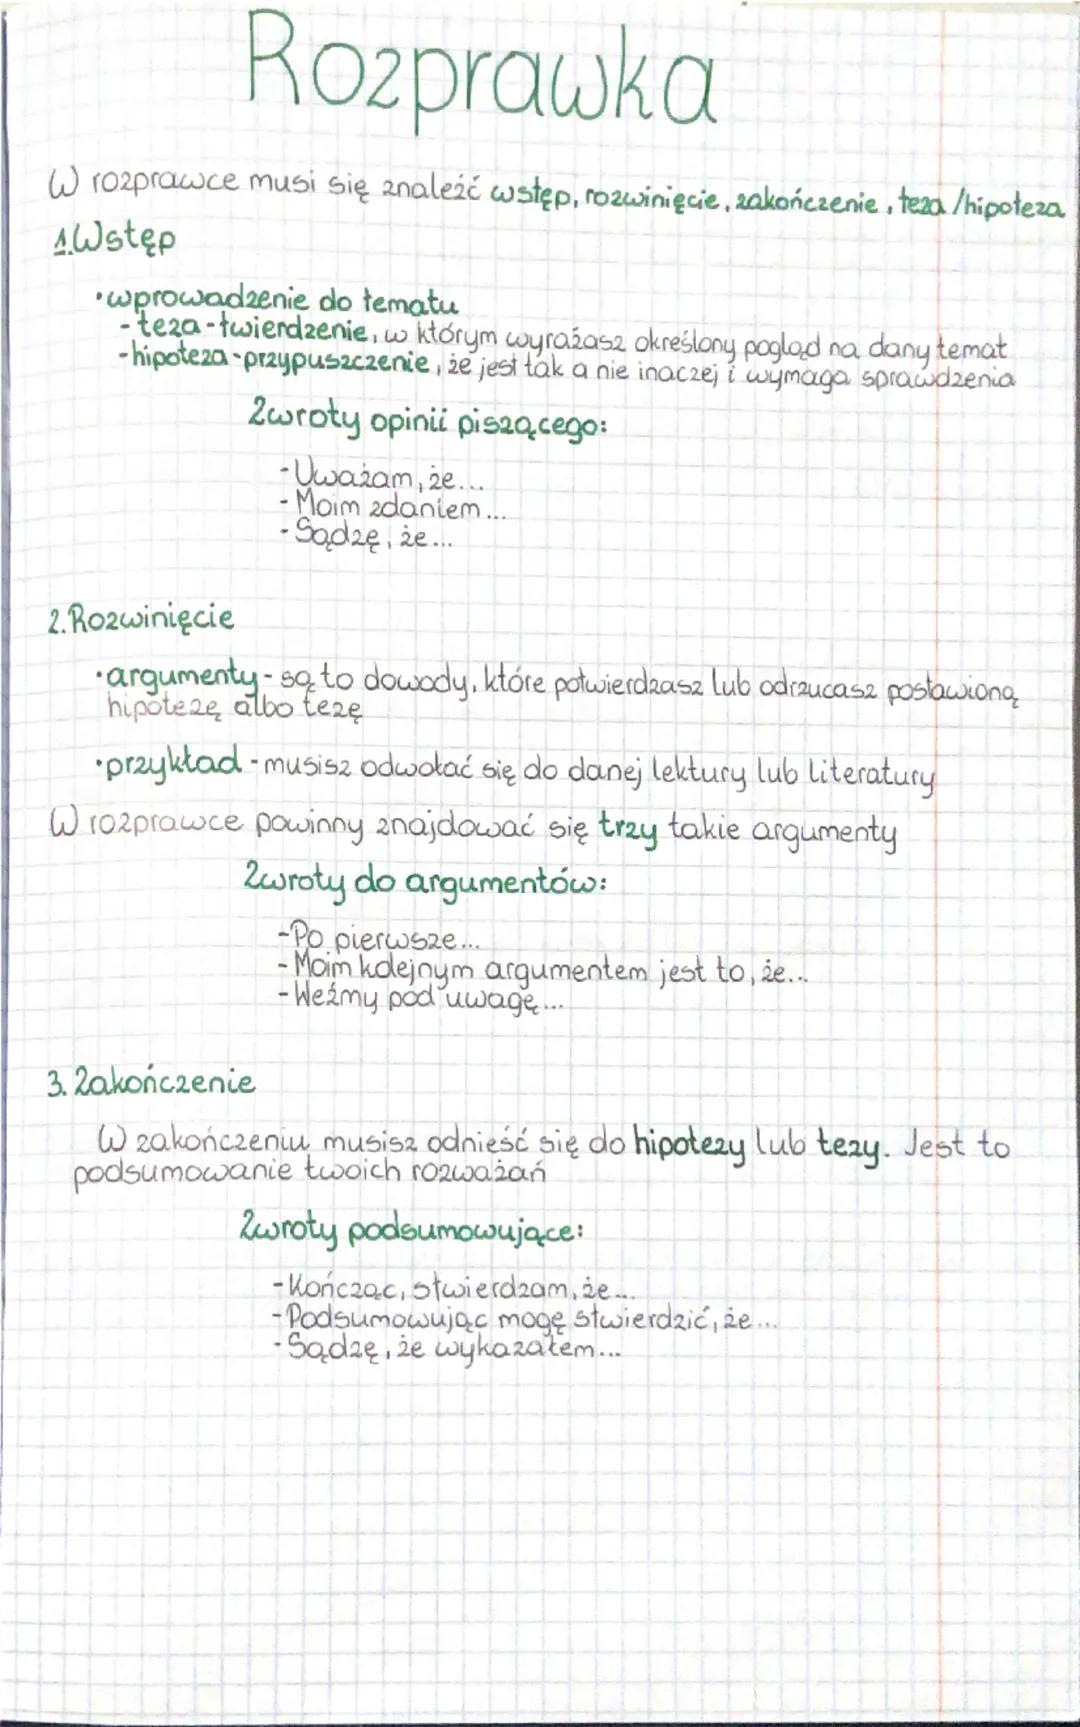 Rozprawka
W rozprawce musi się znaleźć wstęp, rozwinięcie, zakończenie, teza/hipoteza
1.Wstęp
•wprowadzenie do tematu
-teza-twierdzenie, w którym wyrażasz określony pogląd na dany temat
-hipoteza-przypuszczenie, że jest tak a nie inaczej i wymaga sprawdzenia
Zwroty opinii piszącego:
-Uważam, że...
-Moim zdaniem...
-Sądzę, że...
2.Rozwinięcie
•argumenty- są to dowody, które potwierdzasz lub odrzucasz postawioną
hipotezę albo tezę
•przykład-musisz odwołać się do danej lektury lub literatury
W rozprawce powinny znajdować się trzy takie argumenty
Zwroty do argumentów:
-Po pierwsze...
-Moim kolejnym argumentem jest to, że...
-Weźmy pod uwagę...
3. Zakończenie
W zakończeniu musisz odnieść się do hipotezy lub tezy. Jest to
podsumowanie twoich rozważań
Zwroty podsumowujące:
-Kończąc, stwierdzam, że...
-Podsumowując mogę stwierdzić, że...
-Sądzę, że wykazałem...